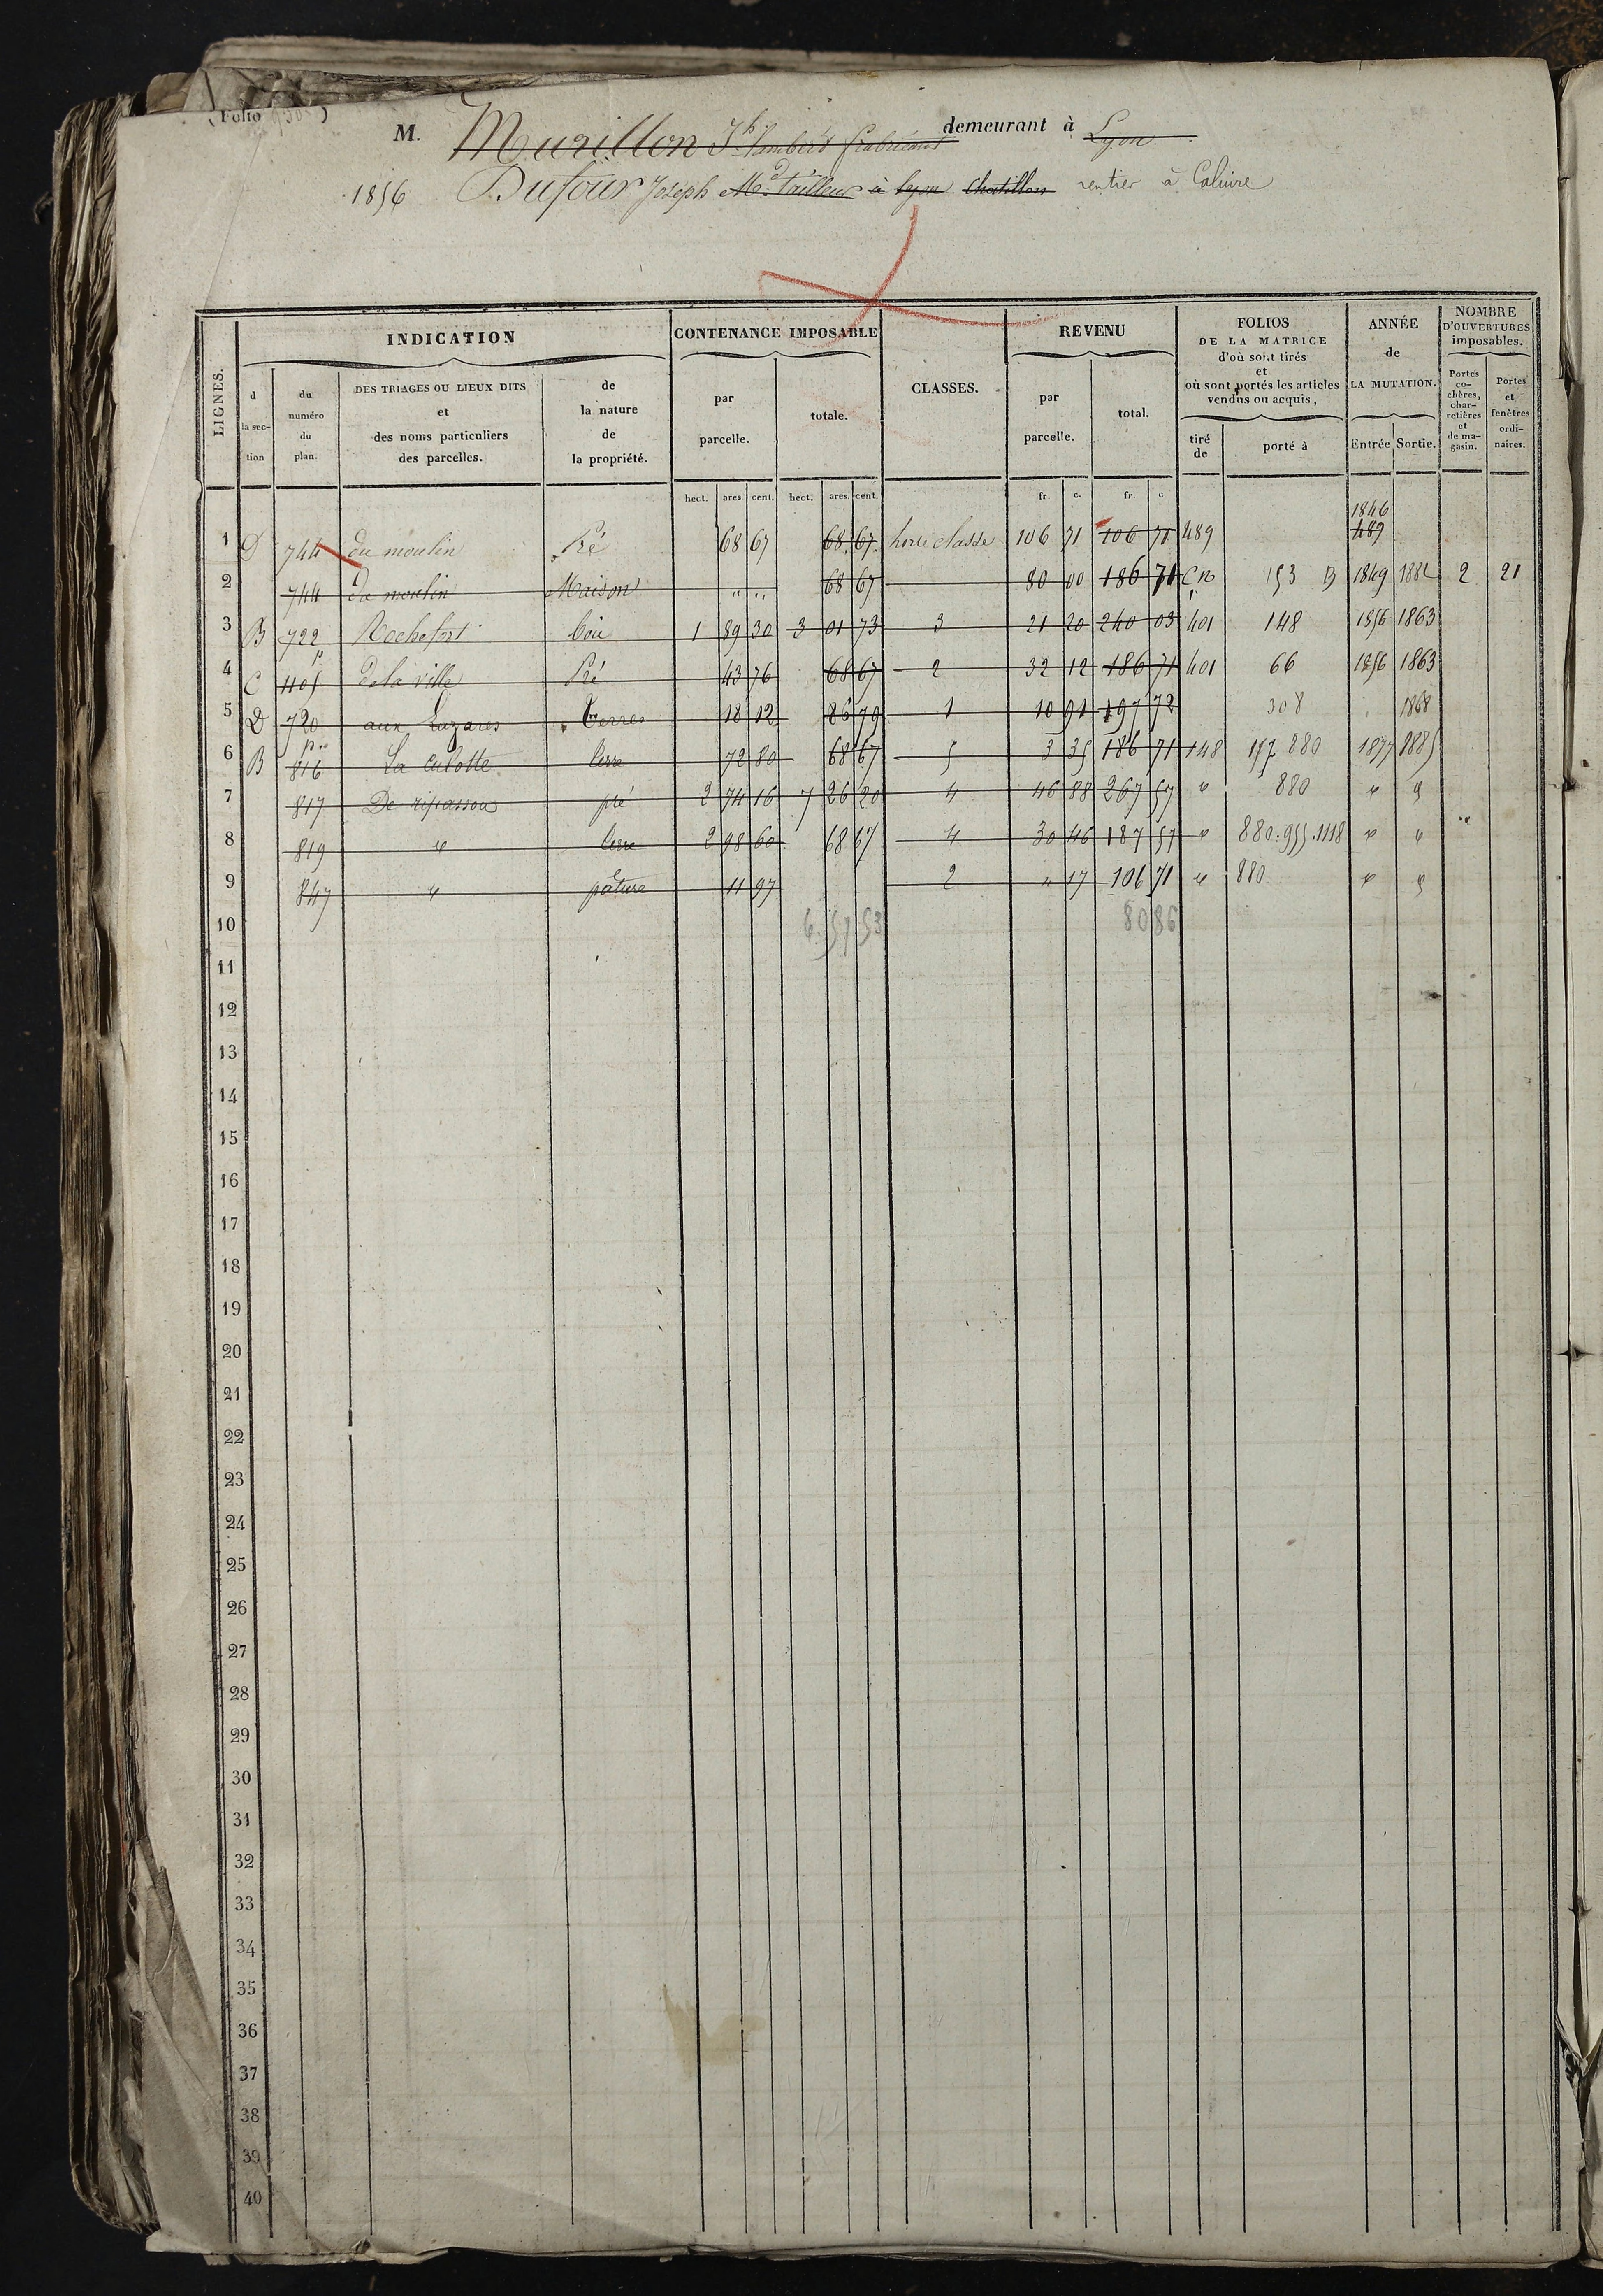 (Folio
M. Murillon Jh Lambert fabricant demeurant à Lyon
1856 Dufour Joseph Md Tailleur à Lyon Chatillon rentier à Caluire
LIGNES.
INDICATION
CONTENANCE IMPOSABLE
CLASSES.
REVENU
FOLIOS DE LA MATRICE d'où sont tirés et où sont portés les articles vendus ou acquis,
ANNÉE de LA MUTATION.
NOMBRE D'OUVERTURES imposables.
d la section
du numéro du plan.
DES TRIAGES OU LIEUX DITS et des noms particuliers des parcelles.
de la nature de la propriété.
par parcelle.
totale.
par parcelle.
total.
tiré de
porté à
Entrée
Sortie.
Portes cochères, charretières et de magasin.
Portes et fenêtres ordinaires.
hect. ares cent. hect. ares. cent. fr. c. fr. c
1846
1 D 744 du moulin Pré 68 67 68 67 hors classe 106 71 106 71 489 489
2 744 du moulin Maison " " " " 68 67 80 00 186 71 C n 153 B 1849 1882 2 21
3 B 722 Rochefort bois 1 89 30 3 01 73 3 21 20 240 03 401 148 1856 1863
4 C 1105 p de la ville Pré 43 76 68 67 2 32 12 186 71 401 66 1856 1863
5 D 720 aux Lazares Terres 18 12 86 79 1 10 91 197 72 308 1868
6 B 816 p La Culotte terre 72 80 68 67 5 3 35 186 71 148 157 880 1877 1885
7 817 De ripassou pré 2 74 16 7 26 20 4 46 88 267 57 " 880 " 5
8 819 " terre 2 98 60 68 67 4 30 46 187 57 " 880.955.1118 " "
9 847 " pâture 11 97 2 " 17 106 71 " 880 " 5
10 6 57 53 80 86
11
12
13
14
15
16
17
18
19
20
21
22
23
24
25
26
27
28
29
30
31
32
33
34
35
36
37
38
39
40